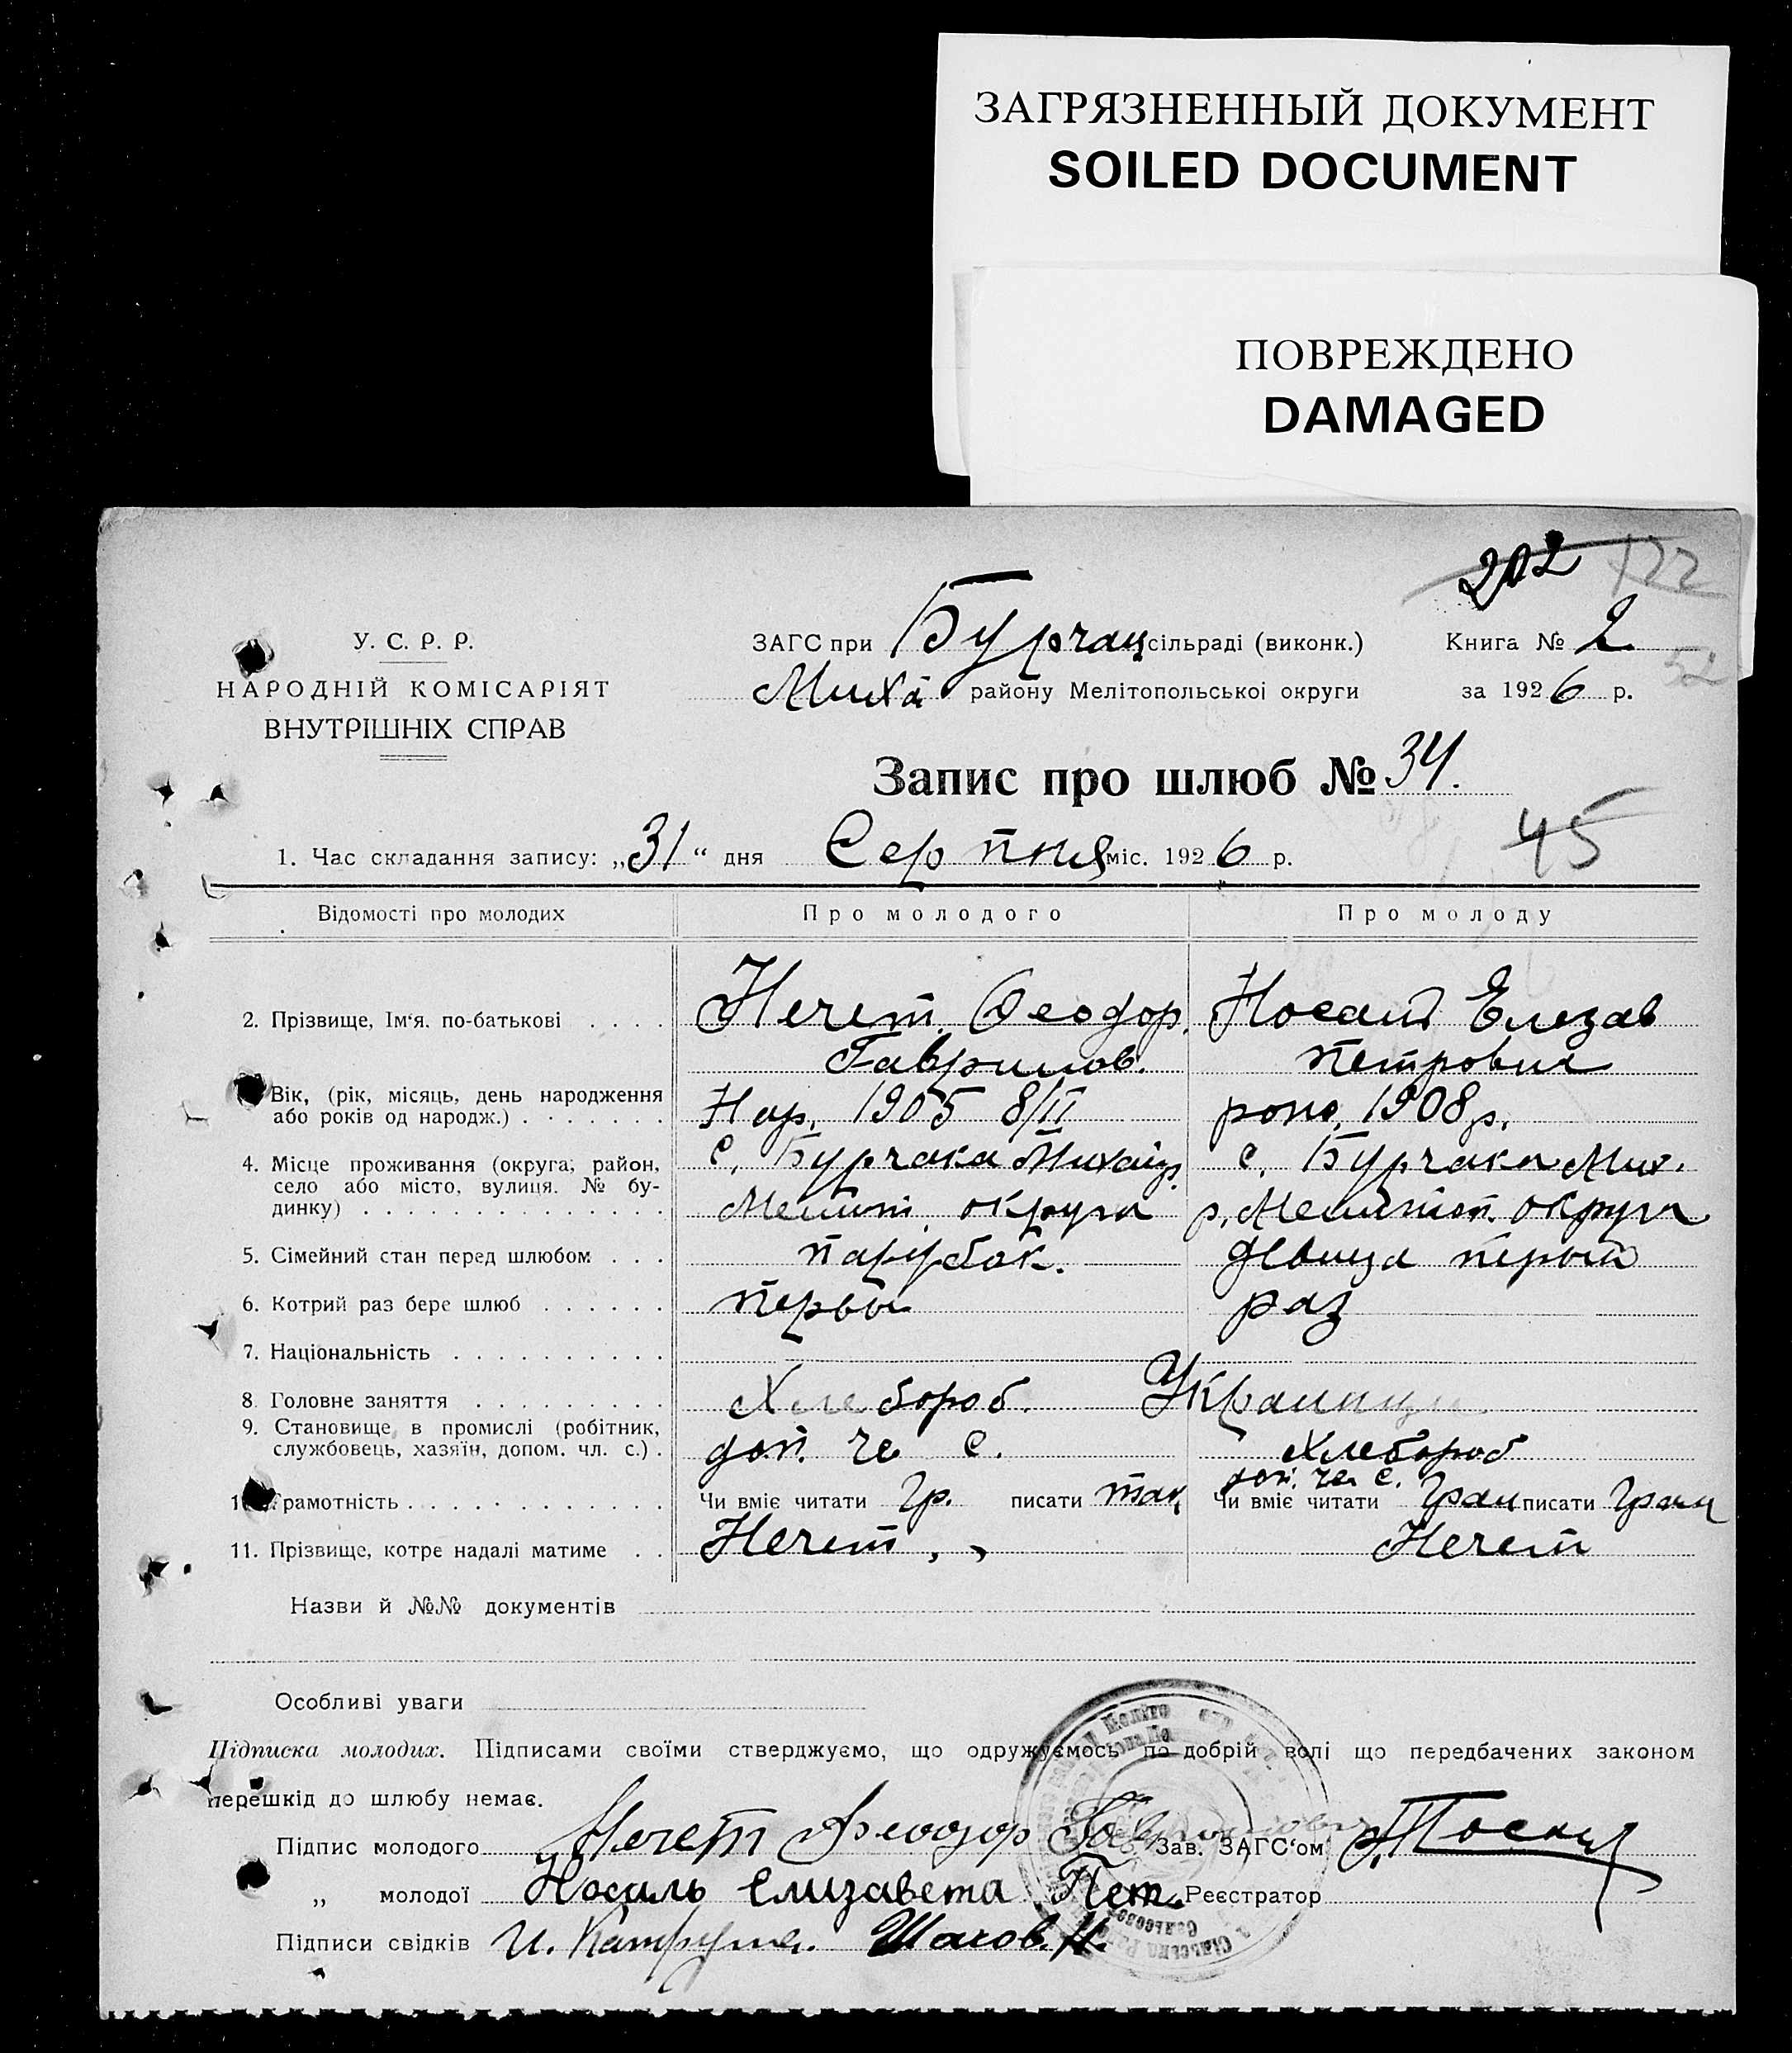 ЗАГРЯЗНЕННЫЙ ДОКУМЕНТ
SOILED DOCUMENT
ПОВРЕЖДЕНО
DAMAGED
202 122
У. С. Р. Р.
НАРОДНІЙ КОМІСАРІЯТ
ВНУТРІШНІХ СПРАВ
ЗАГС при Бурчац сільраді (виконк.) Книга № 2
52
Миха району Мелітопольської округи за 1926 р.
Запис про шлюб № 34.
45
1. Час складання запису: „31“ дня Серпня міс. 1926 р.
Відомості про молодих Про молодого Про молоду
2. Прізвище, Ім'я. по-батькові . . . . Нечет. Феодор. Носаль Елезав
Гаврилов. Петровна
Вік, (рік, місяць, день народження
або років од народж.) . . . . . . . Нар. 1905 8/II 1908 р.
4. Місце проживання (округа, район,
село або місто, вулиця. № бу-
динку) . . . . . . . . . . . . . .
с. Бурчака Михайл. с. Бурчака Мих.
Мелит. округа р. Мелитоп. округа
5. Сімейний стан перед шлюбом . . . парубок. девица первый
6. Котрий раз бере шлюб . . . . . . первый раз
7. Національність . . . . . . . . . .
Украинцы
8. Головне заняття . . . . . . . . . Хлебороб.
9. Становище в промислі (робітник,
службовець, хазяїн, допом. чл. с.) . доп. че с. Хлебороб
доп. че с.
Грамотність . . . . . . . . . . . . Чи вміє читати Гр. писати так Чи вміє читати Грам писати Грам
11. Прізвище, котре надалі матиме . . Нечет Нечет
Назви й №№ документів
Особливі уваги
Підписка молодих. Підписами своїми стверджуємо, що одружуємось по добрій волі що передбачених законом
перешкід до шлюбу немає.
Підпис молодого Нечет Феодор Гаврилович Зав. ЗАГС'ом
„ молодої Носаль Елизавета Пет. Реєстратор
Підписи свідків И. Шахов. Н.